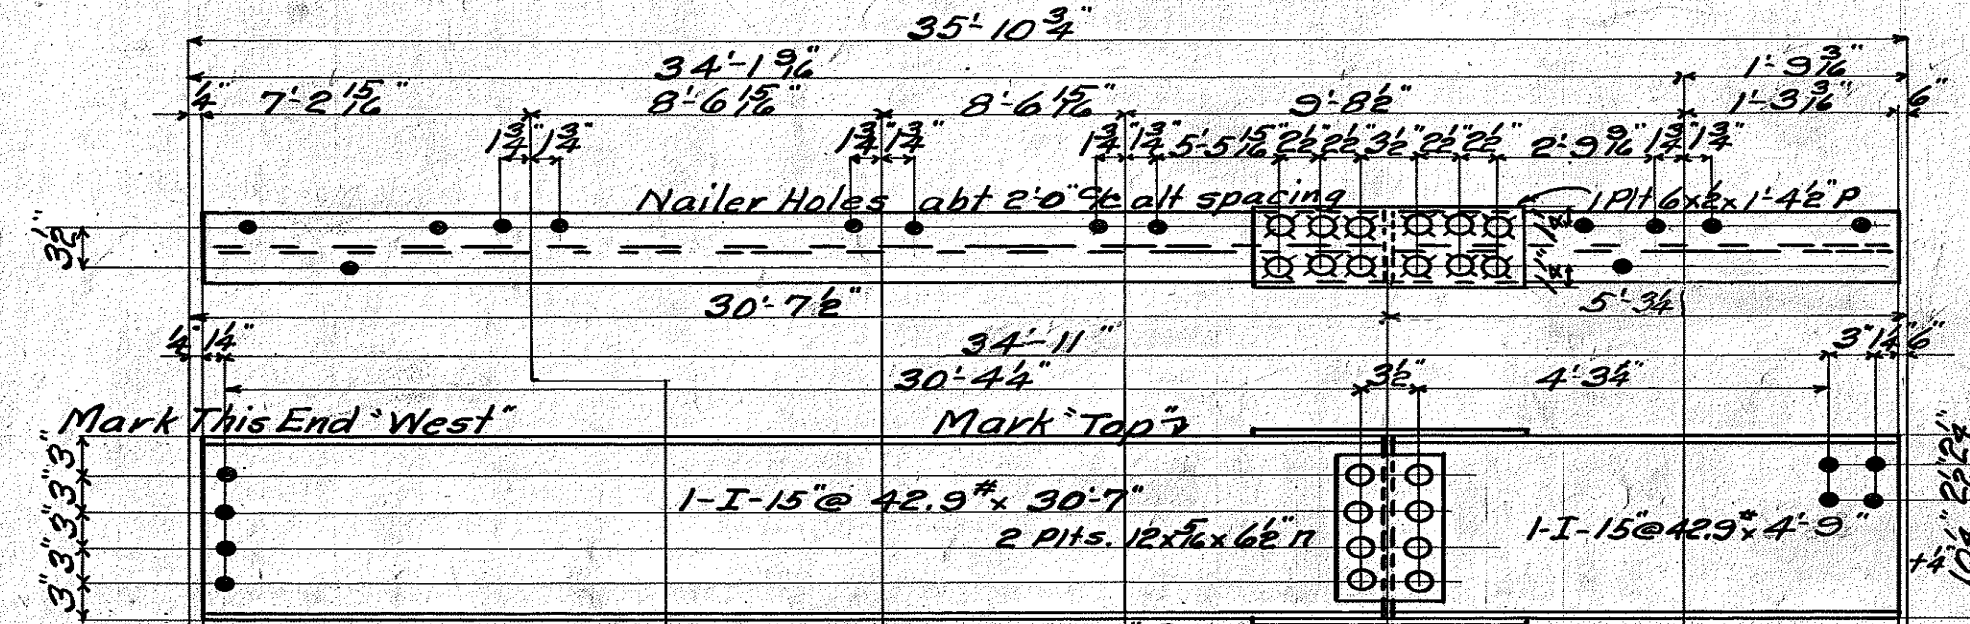 35'-10 3/4"
34'-1 9/16" 1'-9 3/16"
1/4" 7'-2 15/16" 8'-6 15/16" 8'-6 15/16" 9'-8 1/2" 1'-3 3/16" 6"
1 3/4" 1 3/4" 1 3/4" 1 3/4" 1 3/4" 1 3/4" 5'-5 15/16" 2 1/2" 2 1/2" 3 1/2" 2 1/2" 2 1/2" 2'-9 9/16" 1 3/4" 1 3/4"
Nailer Holes abt 2'-0" c/c alt spacing 1 Plt 6x1/2x1'-4 1/2" p
3 1/2" 1 1/4" 1 1/4"
30'-7 1/2" 5'-3 1/4"
1/4" 1 1/4" 34'-11" 3" 1 1/4" 6"
30'-4 1/4" 3 1/2" 4'-3 1/4"
Mark This End "West" Mark "Top"
3" 3" 3" 3" 3"
1-I-15"@ 42.9# x 30'-7"
2 Plts. 12x5/16x6 1/2" n 1-I-15"@42.9# x 4'-9"
2 1/2" 2 1/4"
+4" 10 1/4"